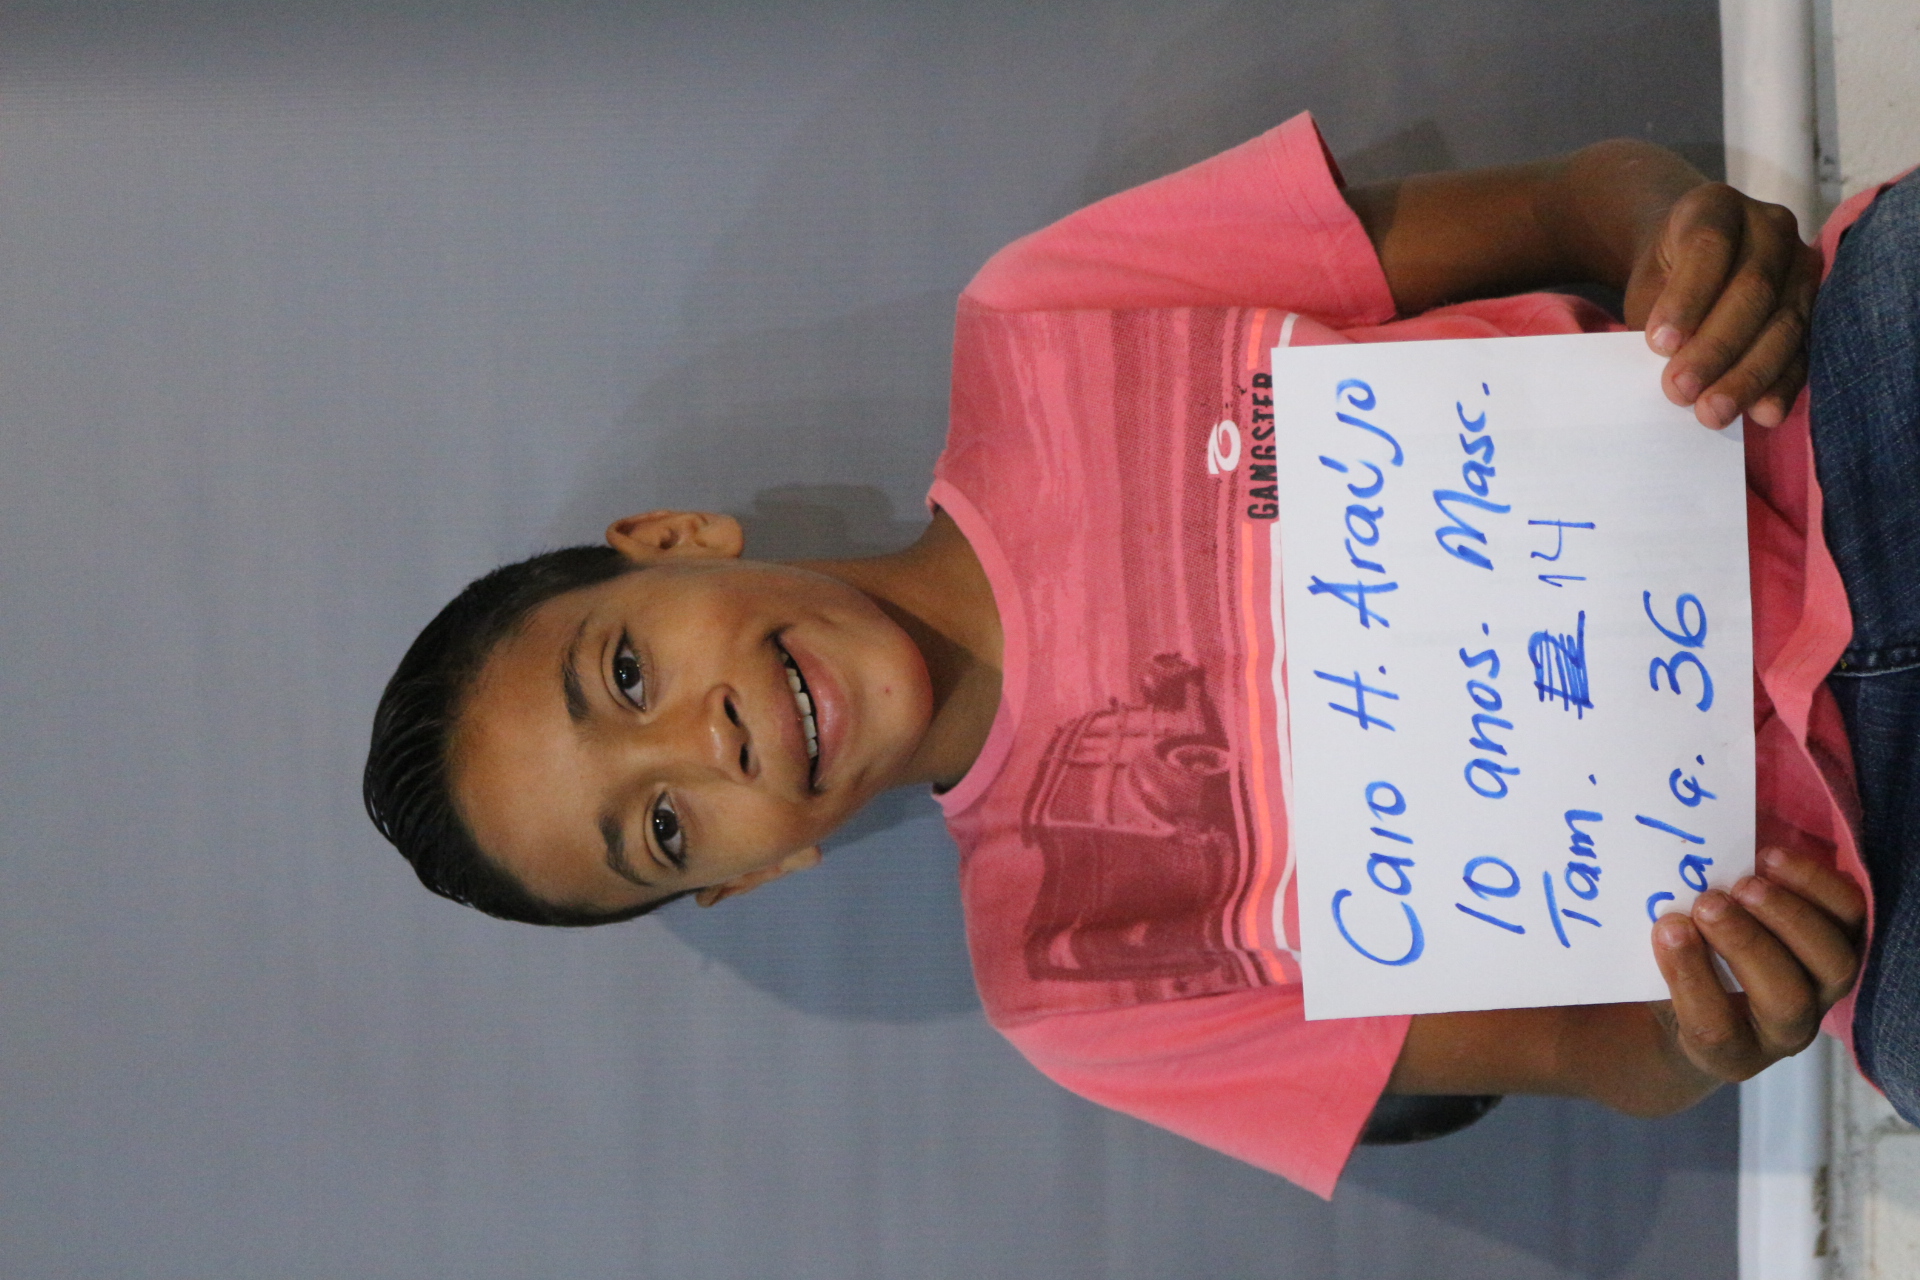 GANGSTER
Caio H. Araújo
10 anos. Masc.
Tam. 14
Calç. 36